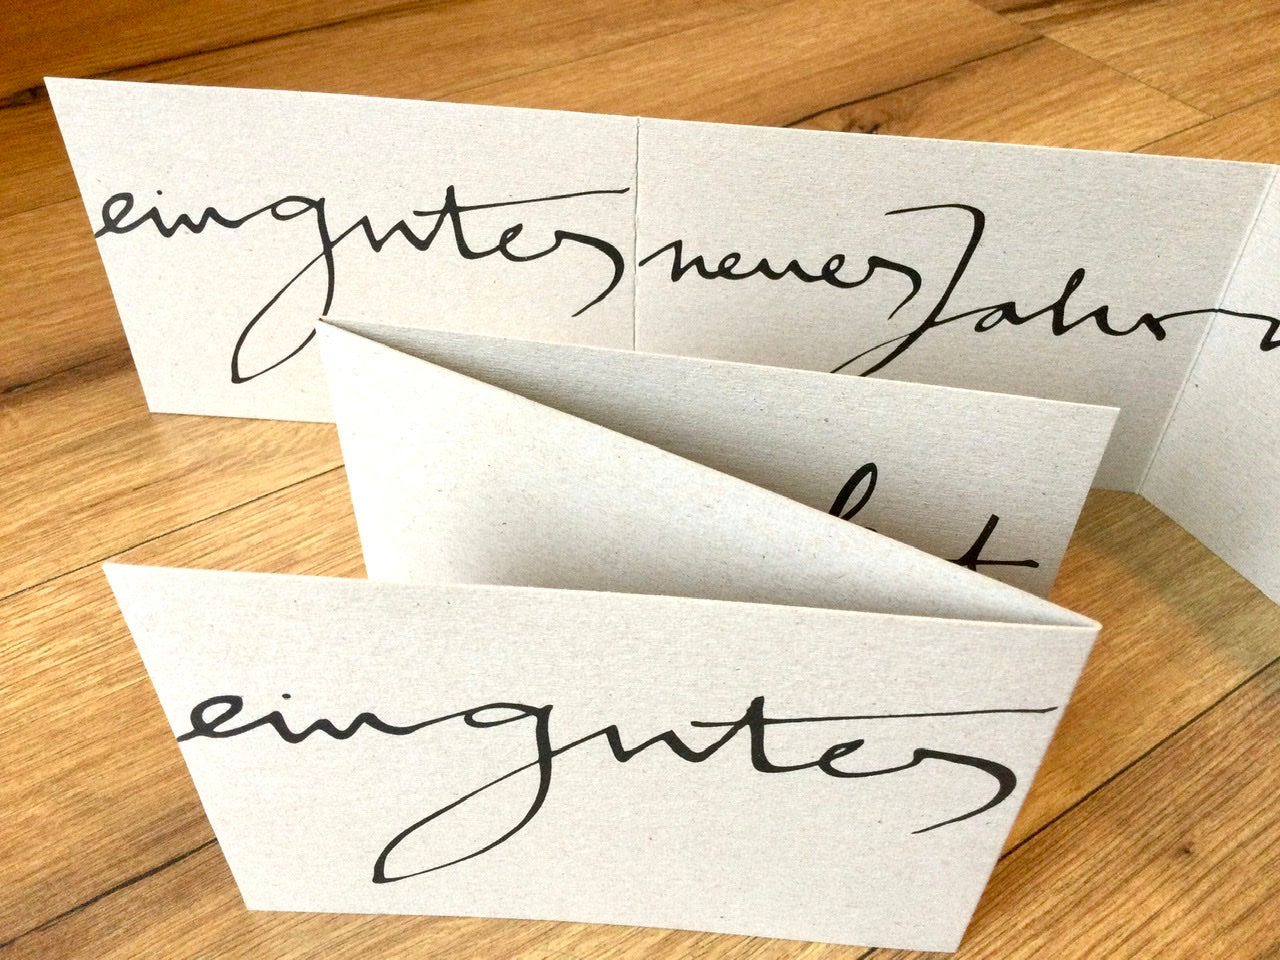 ein gutes neues Jahr
ein gutes